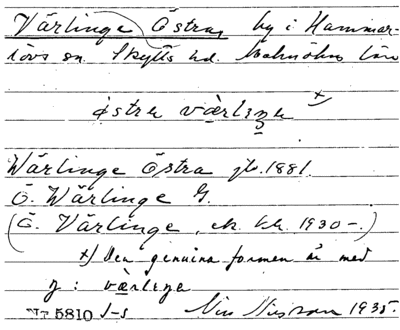 Värlinge Östra, by i Hammar-
lövs sn. Skytts hd. Malmöhus län
östra värlinge x)
Wärlinge Östra jb. 1881.
Ö. Wärlinge G.
(Ö. Värlinge, ek. kk. 1930-.)
x) Den genuina formen är med
g: värlinge
Nr 5810 J-s Nils Nilsson 1935.